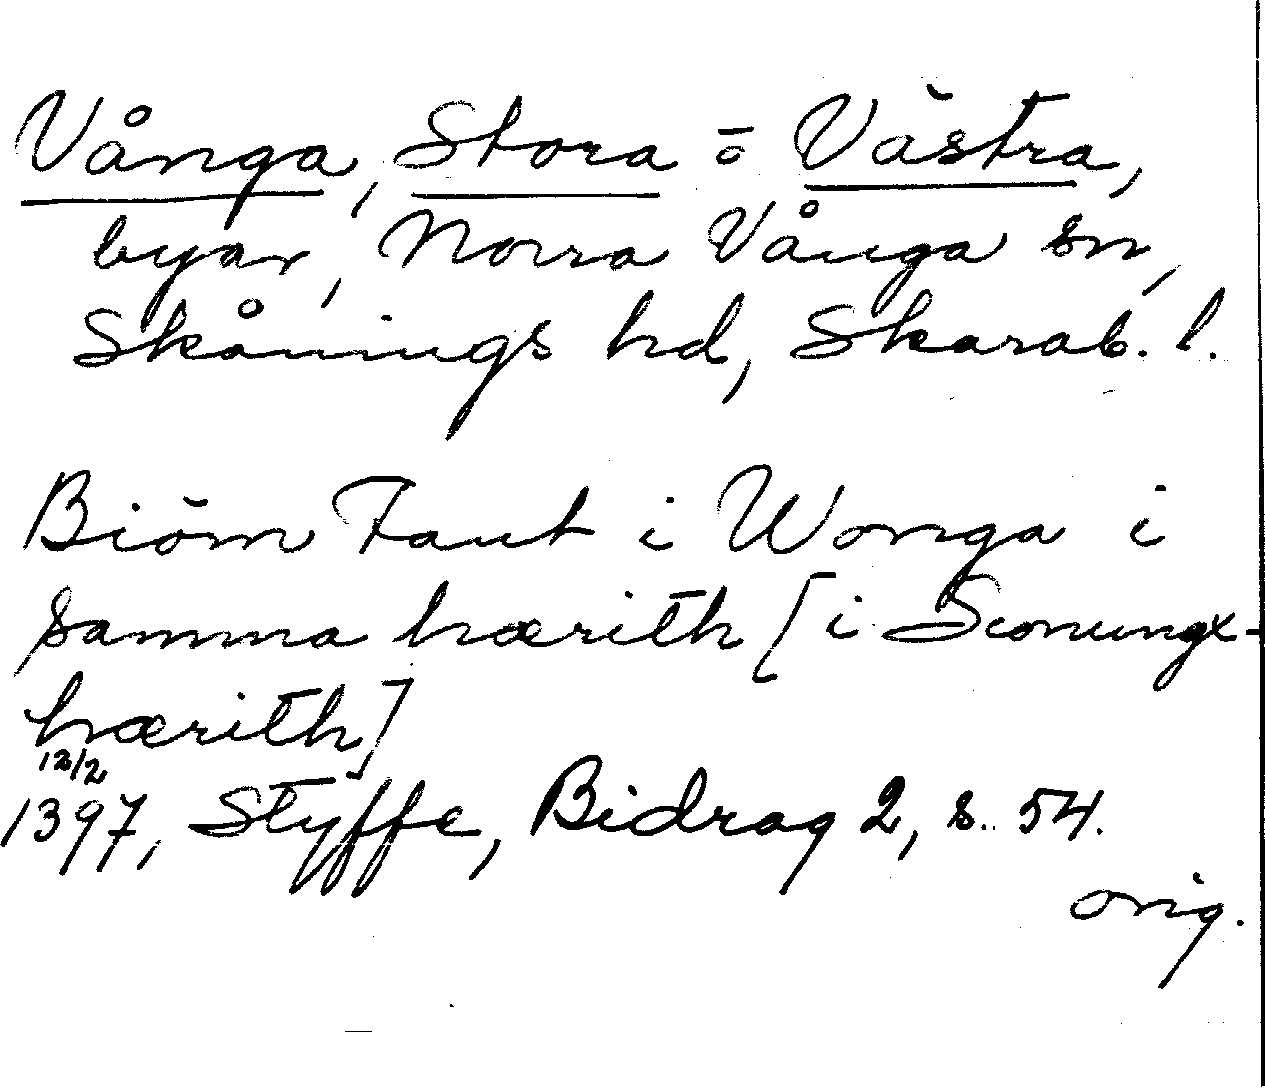 Vånga, Stora o Västra,
byar, Norra Vånga sn,
Skånings hd, Skarab. l.
Biörn Faut i Wonga i
samma hærith [i Sconungx-
hærith]
12/2
1397, Styffe, Bidrag 2, s. 54.
orig.